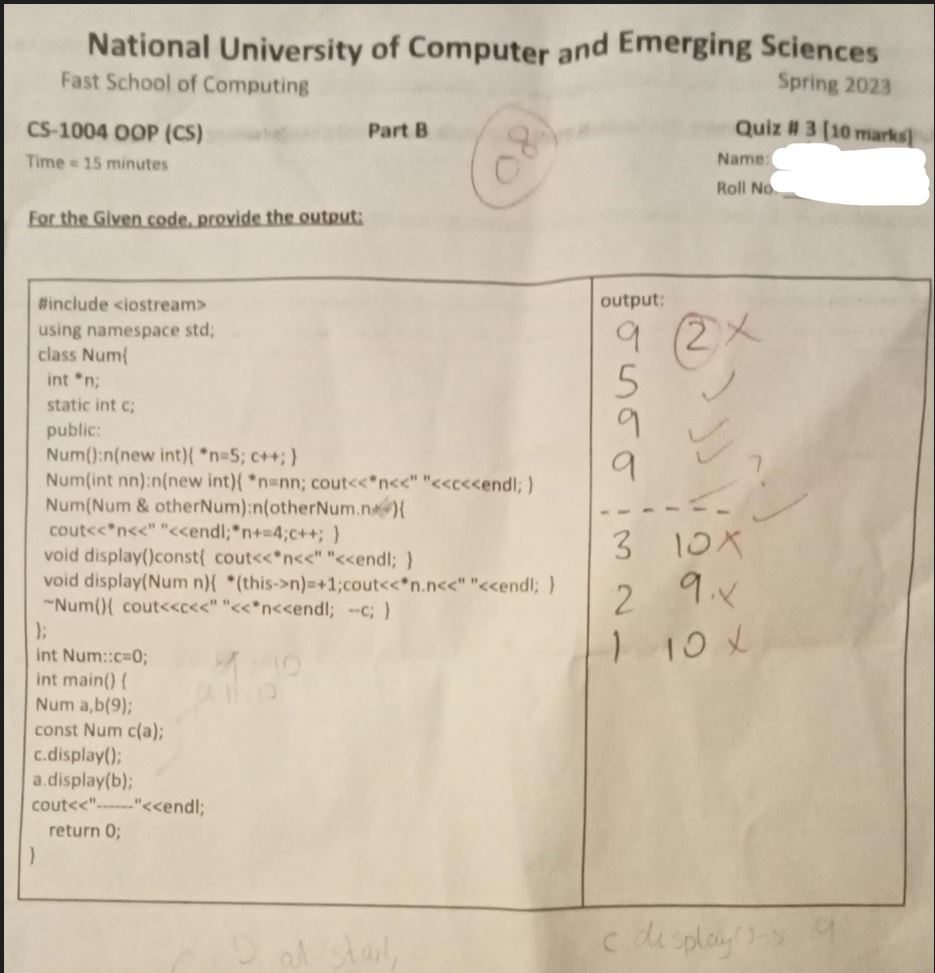 National University of Computer and Emerging Sciences
Fast School of Computing
Spring 2023
CS-1004 OOP (CS)
Part B
Quiz # 3 [10 marks]
08
Time = 15 minutes
Name:
Roll No.
For the Given code, provide the output:
#include <iostream>
using namespace std;
class Num{
int *n;
static int c;
public:
Num():n(new int){ *n=5; c++; }
Num(int nn):n(new int){ *n=nn; cout<<*n<<" "<<c<<endl; }
Num(Num & otherNum):n(otherNum.n){
cout<<*n<<" "<<endl;*n+=4;c++; }
void display()const{ cout<<*n<<" "<<endl; }
void display(Num n){ *(this->n)=+1;cout<<*n.n<<" "<<endl; }
~Num(){ cout<<c<<" "<<*n<<endl; --c; }
};
int Num::c=0;
int main() {
Num a,b(9);
const Num c(a);
c.display();
a.display(b);
cout<<"------"<<endl;
return 0;
}
output:
9 2 ×
5 ✓
9 ✓
9 ✓ ?
------ ✓
3 10 ×
2 9. ×
1 10 ×
at start,
c display()-> 9